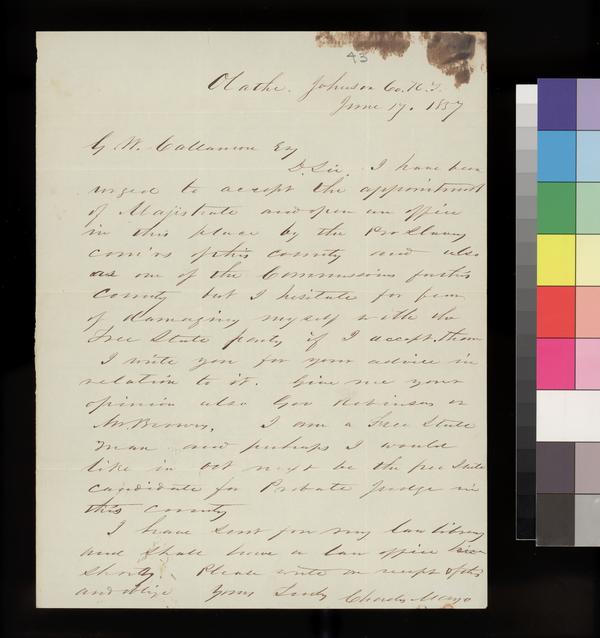 43
Olathe. Johnson Co. K.T.
June 17. 1857
G. W. Esq
D. Sir. I have been
urged to accept the appointment
of Majistrate and open an office
in this place by the Pro Slavery
com'rs of this county and also
as one of the Commissions for this
county but I hesitate for fear
of damaging myself with the
Free State party if I accept them
I write you for your advice in
relation to it. Give me your
opinion also Gov Robinson or
Mr Brown. I am a Free State
man and perhaps I would
like in Oct next be the free State
candidate for Probate Judge in
this county
I have sent for my law library
and shall have a law office here
shortly. Please write on receipt of this
and oblige Yours Truly Charles Mayo